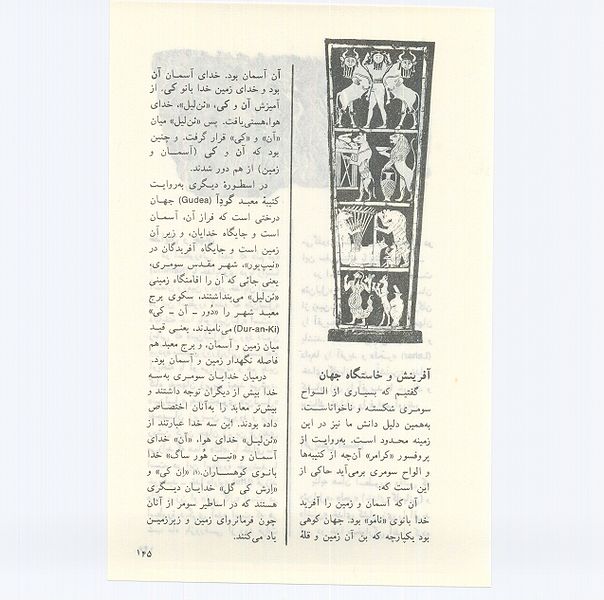 آفرینش و خاستگاه جهان
گفتیم که بسیاری از الواح
سومری شکسته و ناخواناست،
به‌همین دلیل دانش ما نیز در این
زمینه محدود است. به‌روایت از
پروفسور «کرامر» آن‌چه از کتیبه‌ها
و الواح سومری برمی‌آید حاکی از
این است که:
آن که آسمان و زمین را آفرید
خدا بانوی «نامّو» بود. جهان کوهی
بود یکپارچه که بن آن زمین و قلهٔ
آن آسمان بود. خدای آسمان آن
بود و خدای زمین خدا بانو کی. از
آمیزش آن و کی، «ئن‌لیل»، خدای
هوا،هستی‌یافت. پس «ئن‌لیل» میان
«آن» و «کی» قرار گرفت. و چنین
بود که آن و کی (آسمان و
زمین) از هم دور شدند.
در اسطورهٔ دیگری به‌روایت
کتیبهٔ معبد گودِآ (Gudea) جهان
درختی است که فراز آن، آسمان
است و جایگاه خدایان، و زیر آن
زمین است و جایگاه آفریدگان در
«نیپ‌پور»، شهر مقدس سومری،
یعنی جائی که آن را اقامتگاه زمینی
«ئن‌لیل» می‌پنداشتند، سکوی برج
معبد شهر را «دُور ـ آن ـ کی»
(Dur-an-Ki) می‌نامیدند، یعنی قید
میان زمین و آسمان، و برج معبد هم
فاصله نگهدار زمین و آسمان بود.
درمیان خدایان سومری به‌سه
خدا بیش از دیگران توجه داشتند و
بیش‌تر معابد را به‌آنان اختصاص
داده بودند. این سه خدا عبارتند از
«ئن‌لیل» خدای هوا، «آن» خدای
آسمان و «نین هُور ساگ» خدا
بانوی کوهساران. «اِن کی» و
«اِرِش کی گل» خدایان دیگری
هستند که در اساطیر سومر از آنان
چون فرمانروای زمین و زیرزمین
یاد می‌کنند.
۱۴۵